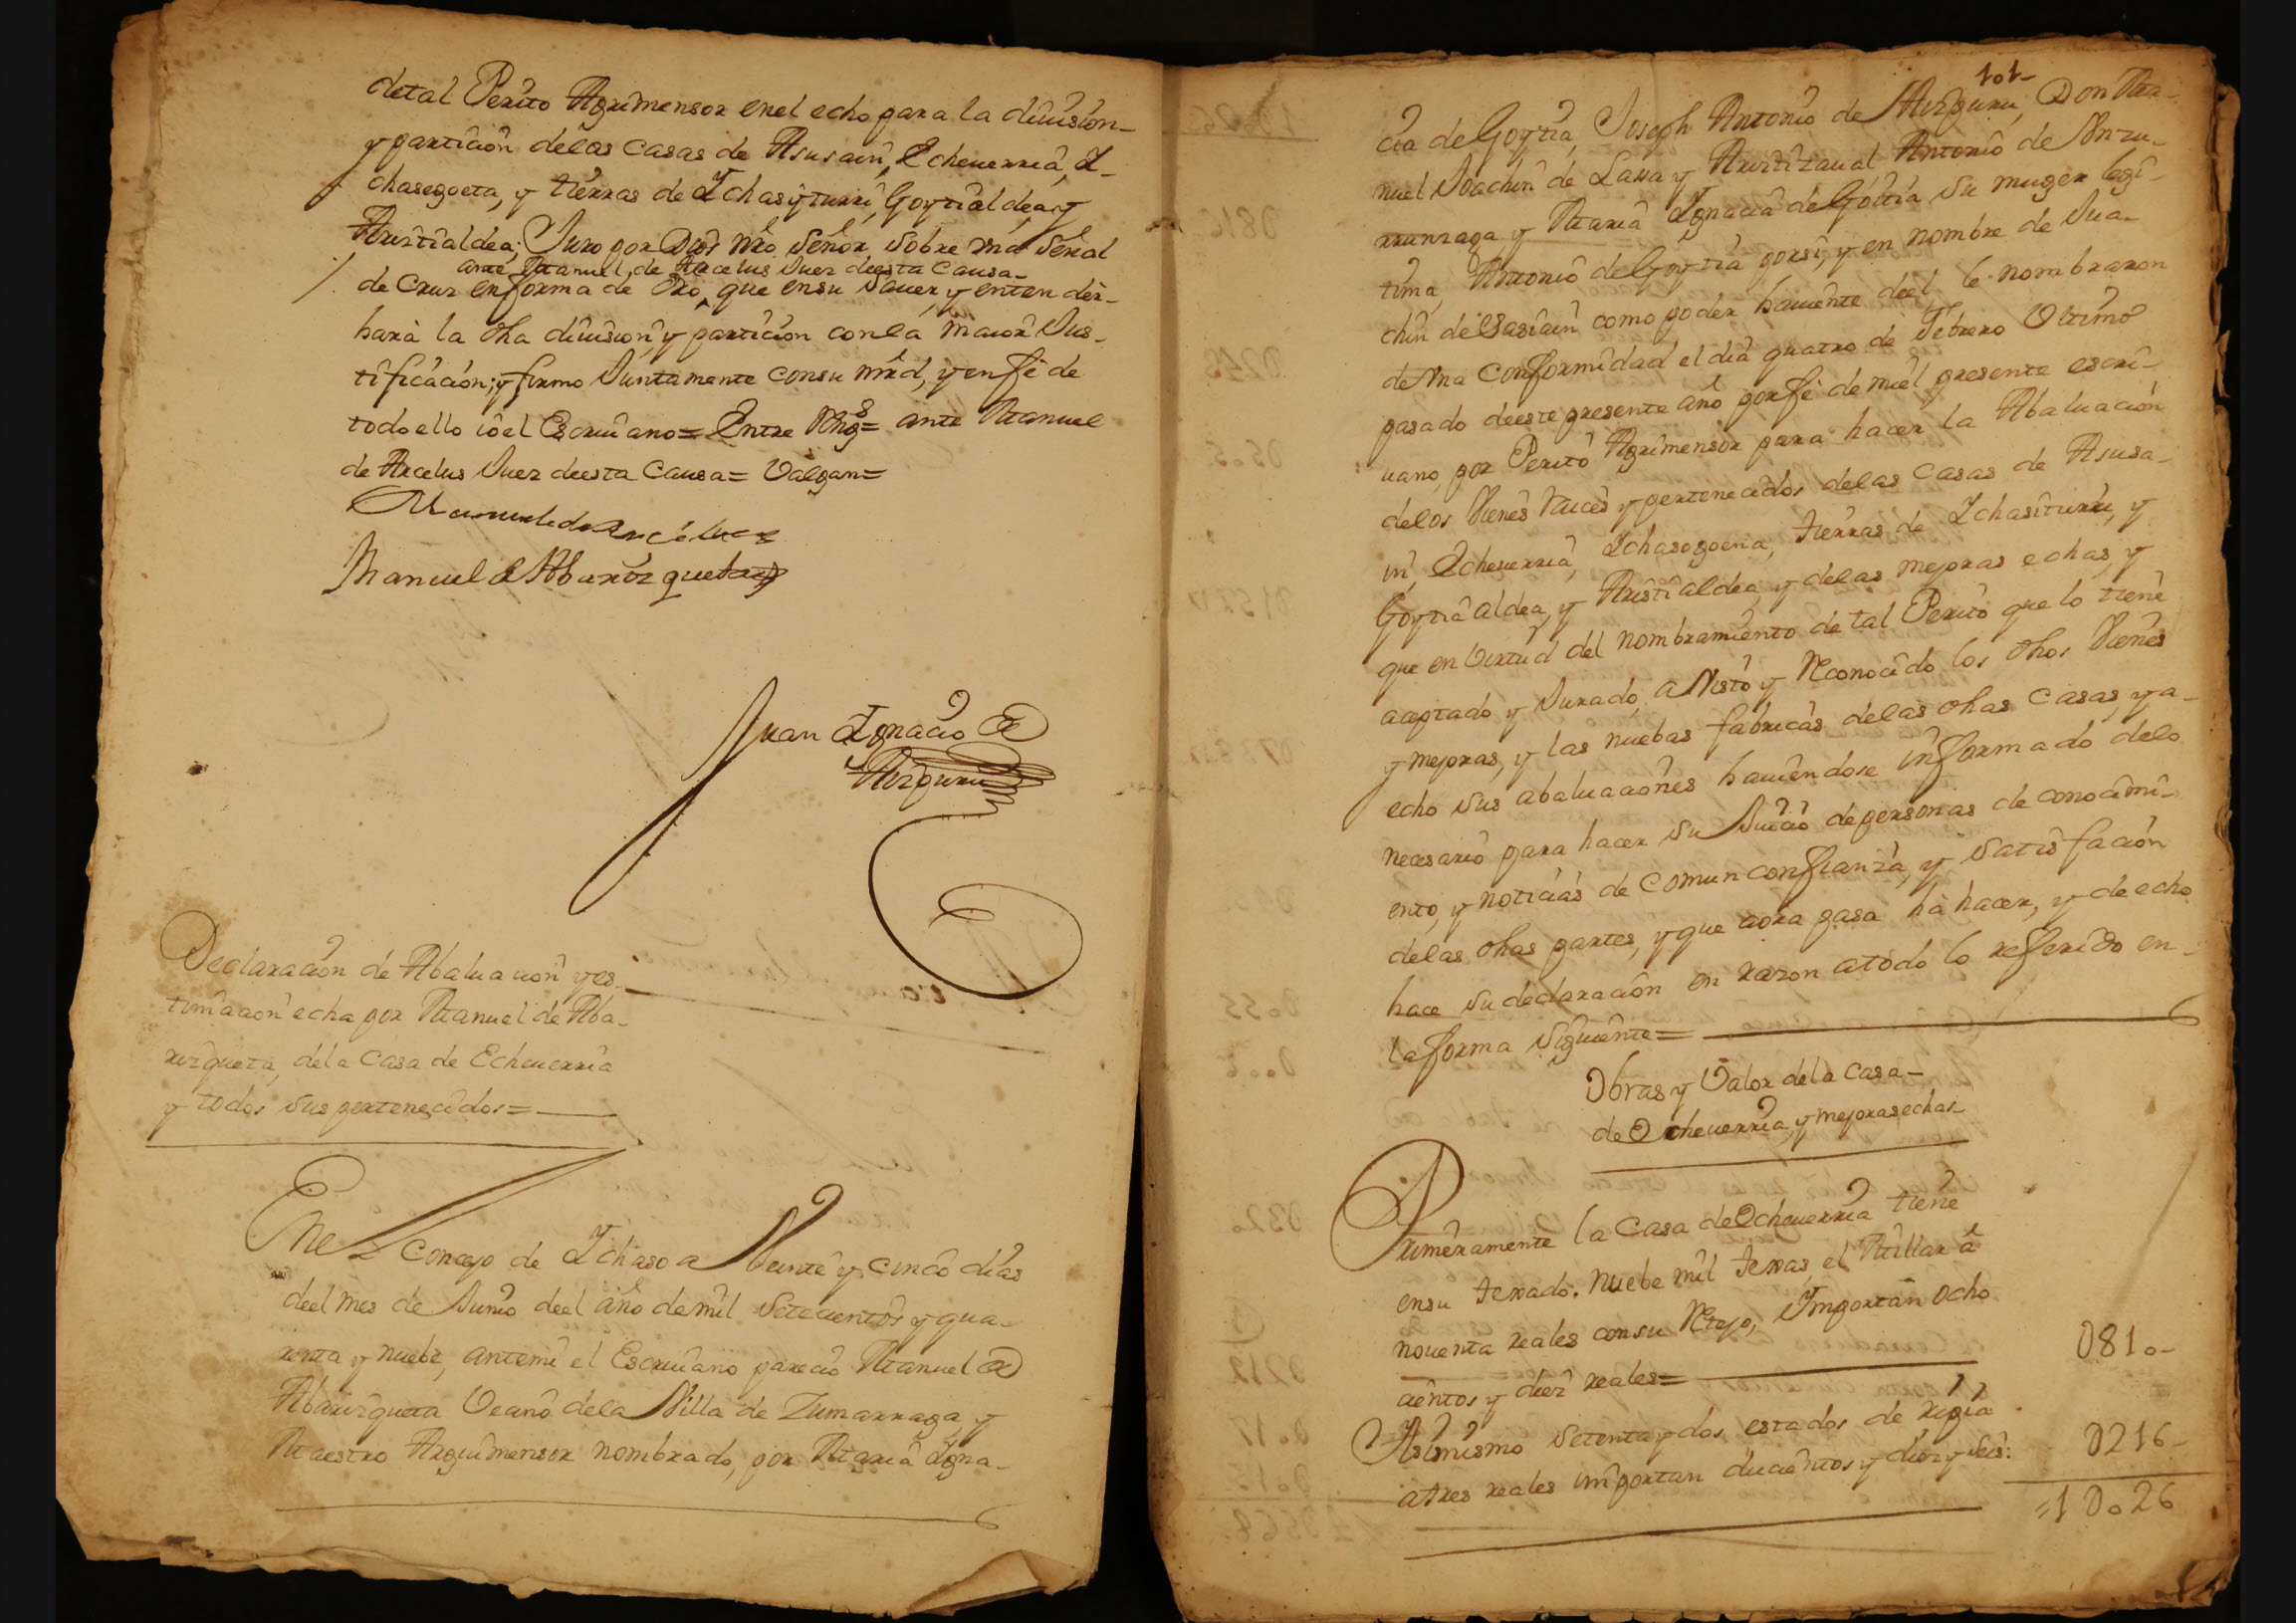 detal Perito Agrimensor enel echo para la diuision
y particion delas casas de Asusain, Echeuerria, Y-
chasegoeta, y tierras de Ychasyturri, Goytialdea, y
Aristialdea; Juro por Dios nrô señor sobre vna señal
ante Manuel de Arcelus Juez deesta causa
de Cruz enforma de Dro, que ensu sauer, y enten der-
hara la dha diuision, y particion conla maior Jus-
tificacion; y firmo Juntamente consu mrd, y enfe de
todo ello io el Escriuano= Entre Rengs= ante Manuel
de Arcelus Juez deesta Causa= Valgan=
Manuel de Arcelus
Manuel de Abarizqueta
Juan Ignacio de
Aizpuru
Declaracion de Abaluacion y es-
timacion echa por Manuel de Aba-
rizqueta, dela Casa de Echeuerria
y todos sus pertenecidos=
Enel Concejo de Ychaso a Veinte y cinco dias
deel mes de Junio deel año demil setecientos y qua-
renta y nuebe, antemi el Escriuano parecio Manuel de
Abarizqueta Vecino dela Villa de Zumarraga, y
Maestro Agrimensor nombrado, por Maria Igna-
101-
cia de Goytia, Joseph Antonio de Aizpuru, Don Ma-
nuel Joachin de Lasa y Aristizaual, Antonio de Vnzu-
rrunzaga y Maria Ignacia de Goitia su muger legi-
tima, Antonio de Goytia porsi, y en nombre de Jua-
chin de Sasiain como poder hauiente deel le nombraron
de vna conformidad el dia quatro de Febrero Vltimo
pasado deeste presente año porfe de miel presente escri-
uano, por Perito Agrimensor para hacer la Abaluacion
delos Vienes raices y pertenecidos delas casas de Asusa-
in, Echeuerria, Ychasogoena, tierras de Ychasiturri, y
Goytiaaldea, y Aristialdea, y delas mejoras echas, y
que en Virtud del nombramiento de tal Perito que lo tiene
aceptado y Jurado, a Visto y Reconocido los dhos Vienes
y mejoras, y las nuebas fabricas delas dhas casas, y a-
echo sus abaluaciones hauiendose informado delo
necesario para hacer su Juicio depersonas de conocimi-
ento, y noticias de comun confianza, y satisfacion
delas dhas partes, y que aora pasa hà hacer, y de echo
hace su declaracion en razon atodo lo referido en-
laforma siguiente=
Obras y Valor dela casa-
de Echeuerria, y mejoras echas-
Primeramente la Casa de Echeuerria tiene
ensu texado. nuebe mil texas, el Millar à
nouenta reales consu Retejo, Importan ocho
cientos y diez reales= 0810-
Asimismo setenta y dos estados de ripia
atres reales importan ducientos y diez y seis: 0216-
=1026